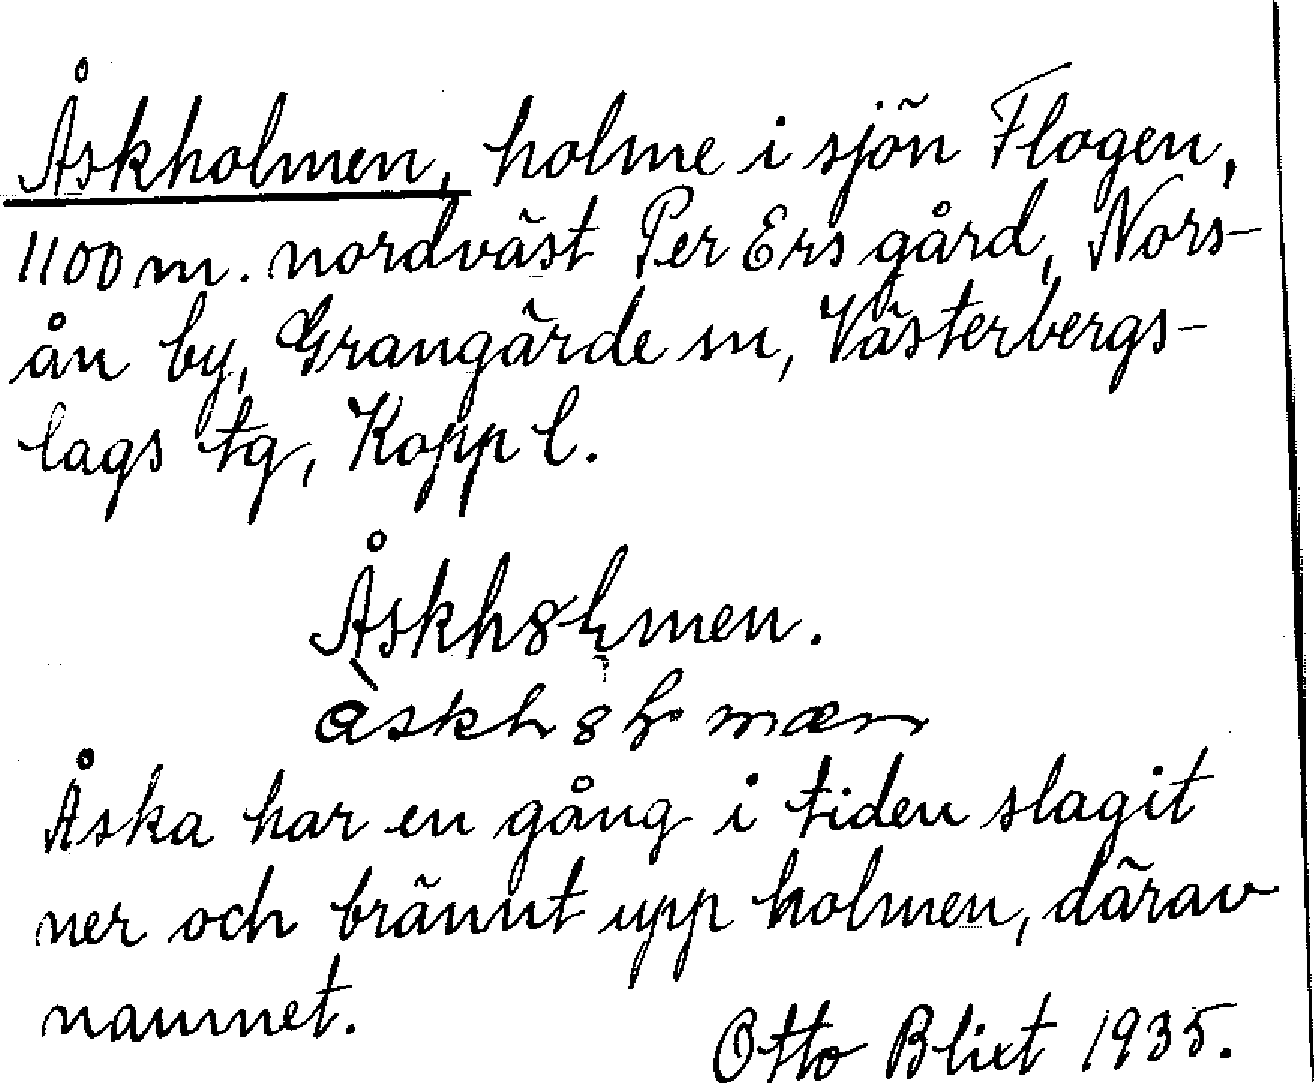 Åskholmen, holme i sjön Flogen,
1100 m. nordväst Per Ers gård, Nors-
ån by, Grangärde sn, Västerbergs-
lags tg, Kopp l.
Åskh
Åska har en gång i tiden slagit
ner och brännt upp holmen, därav
namnet.
Otto Blixt 1935.